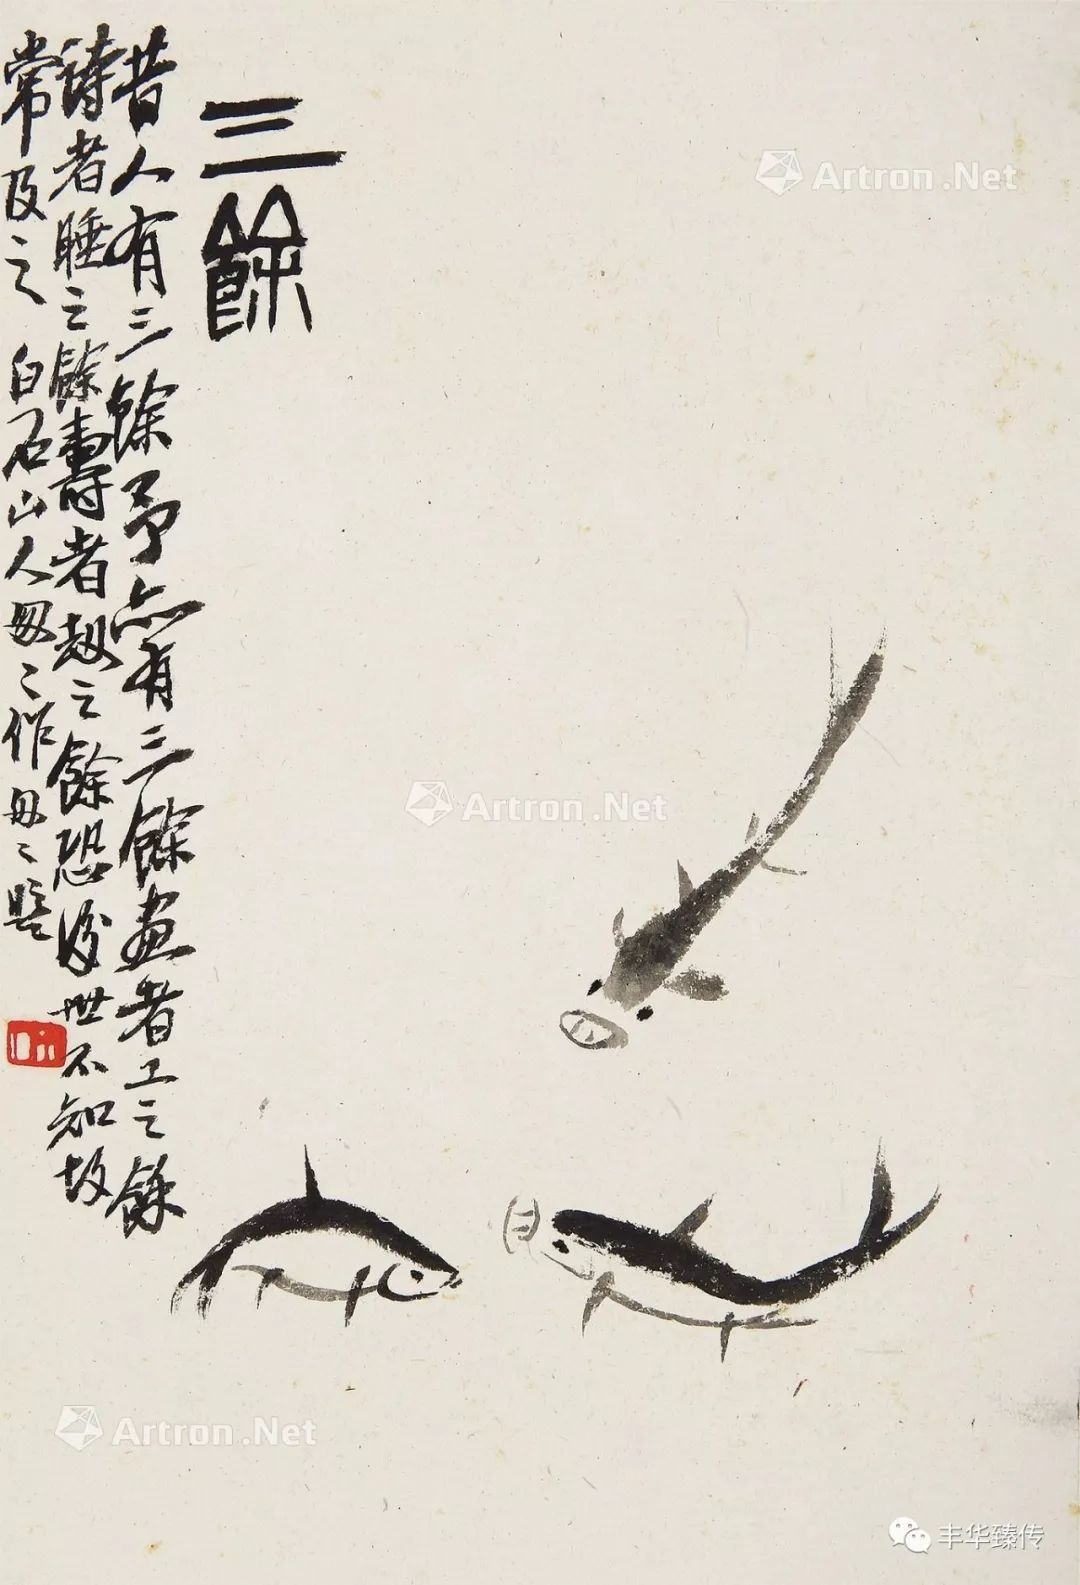 三餘
昔人有三餘予亦有三餘畫者工之餘
诗者睡之餘壽者劫之餘恐後世不知故
常及之 白石山人 又又作 又又題
Artron.Net
Artron.Net
Artron.Net
丰华臻传